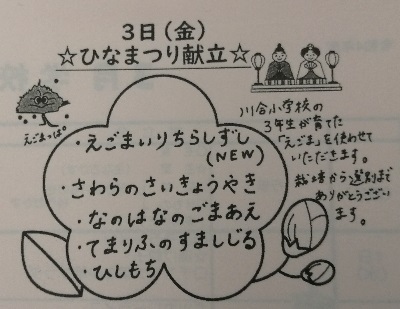 3日(金)
☆ひなまつり献立☆
えごまっぱ
・えごまいりちらしずし
(NEW)
・さわらのさいきょうやき
・なのはなのごまあえ
・てまりふのすましじる
・ひしもち
川合小学校の
3年生が育てた
「えごま」を使わせて
いただきます。
栽培から選別まで
ありがとうござい
ます。